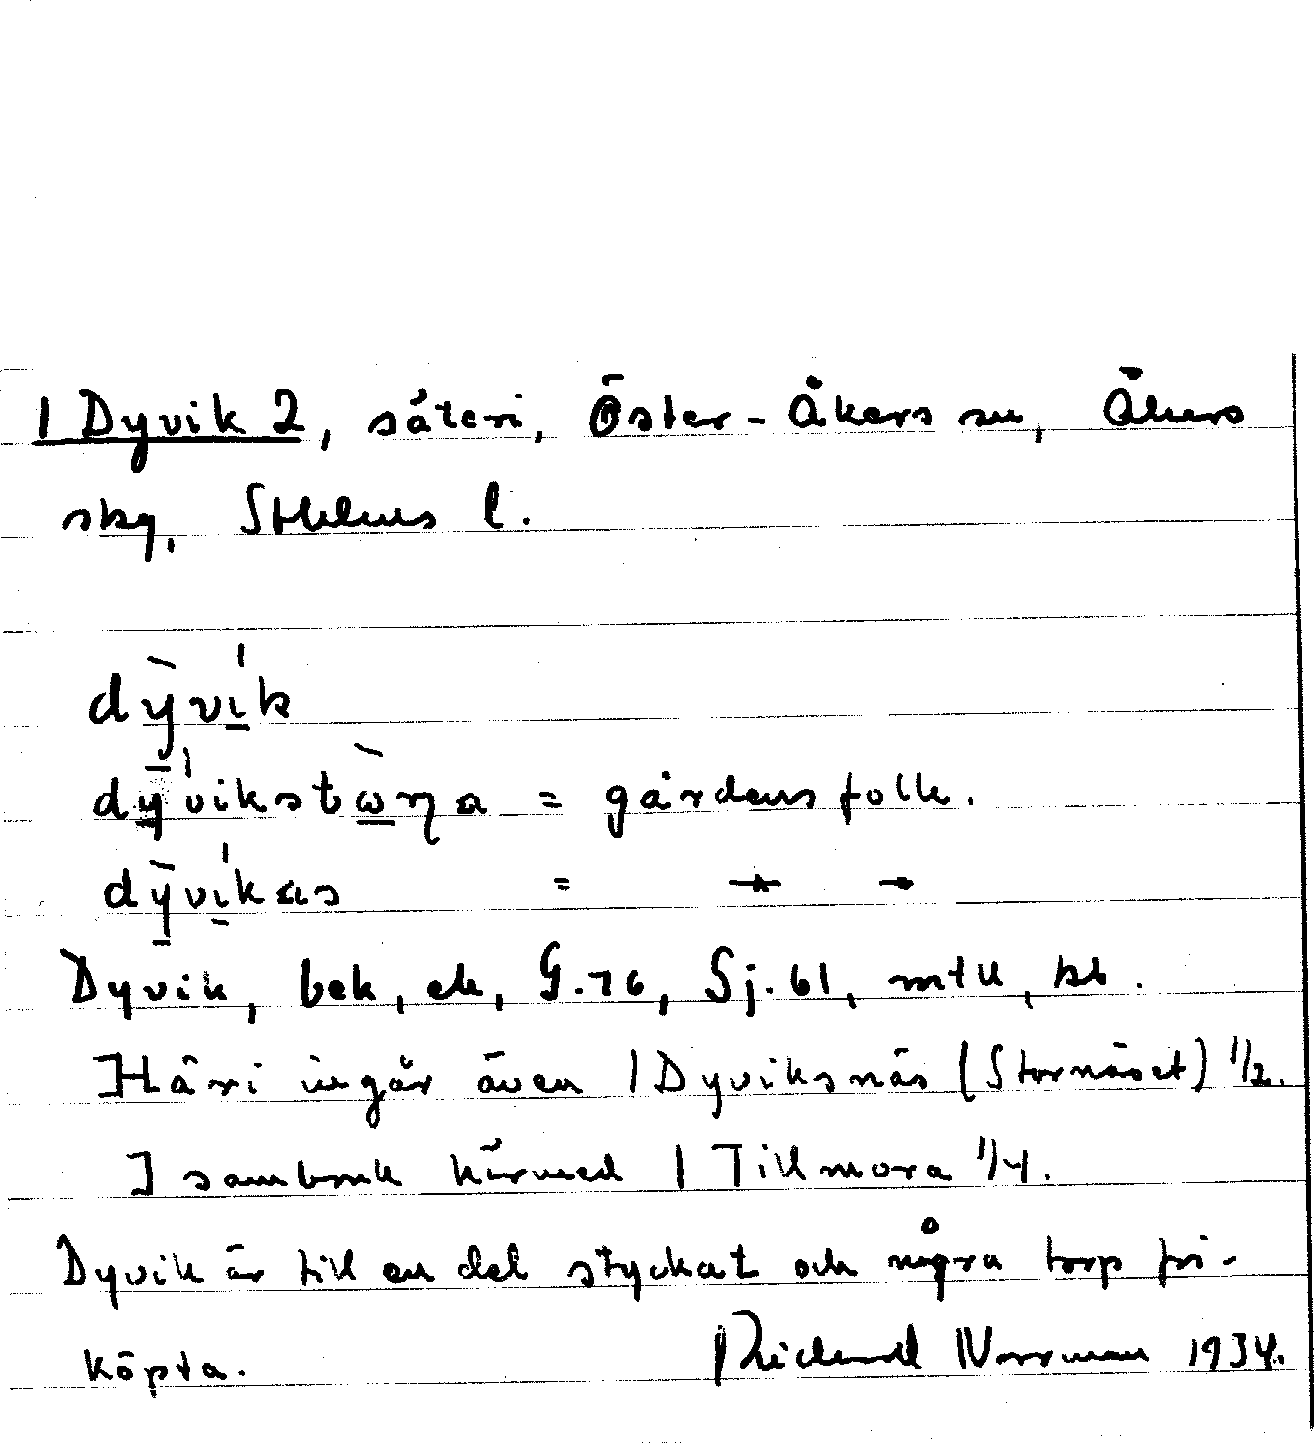 1 Dyvik 2, säteri, Öster-Åkers sn, Åkers
skg, Sthlms l.
dỳ̠ví̠k
dỳ̠vikstὼ̠ηa = gårdens folk.
dỳ̠ví̠kas = -"- -"-
Dyvik, bek, ek, G.76, Sj.61, mtl, kb.
Häri ingår även 1 Dyviksnäs (Stornäset) 1/2.
I sambruk härmed 1 Tillmora 1/4.
Dyvik är till en del styckat och några torp fri-
köpta. Richard Norrman 1934.